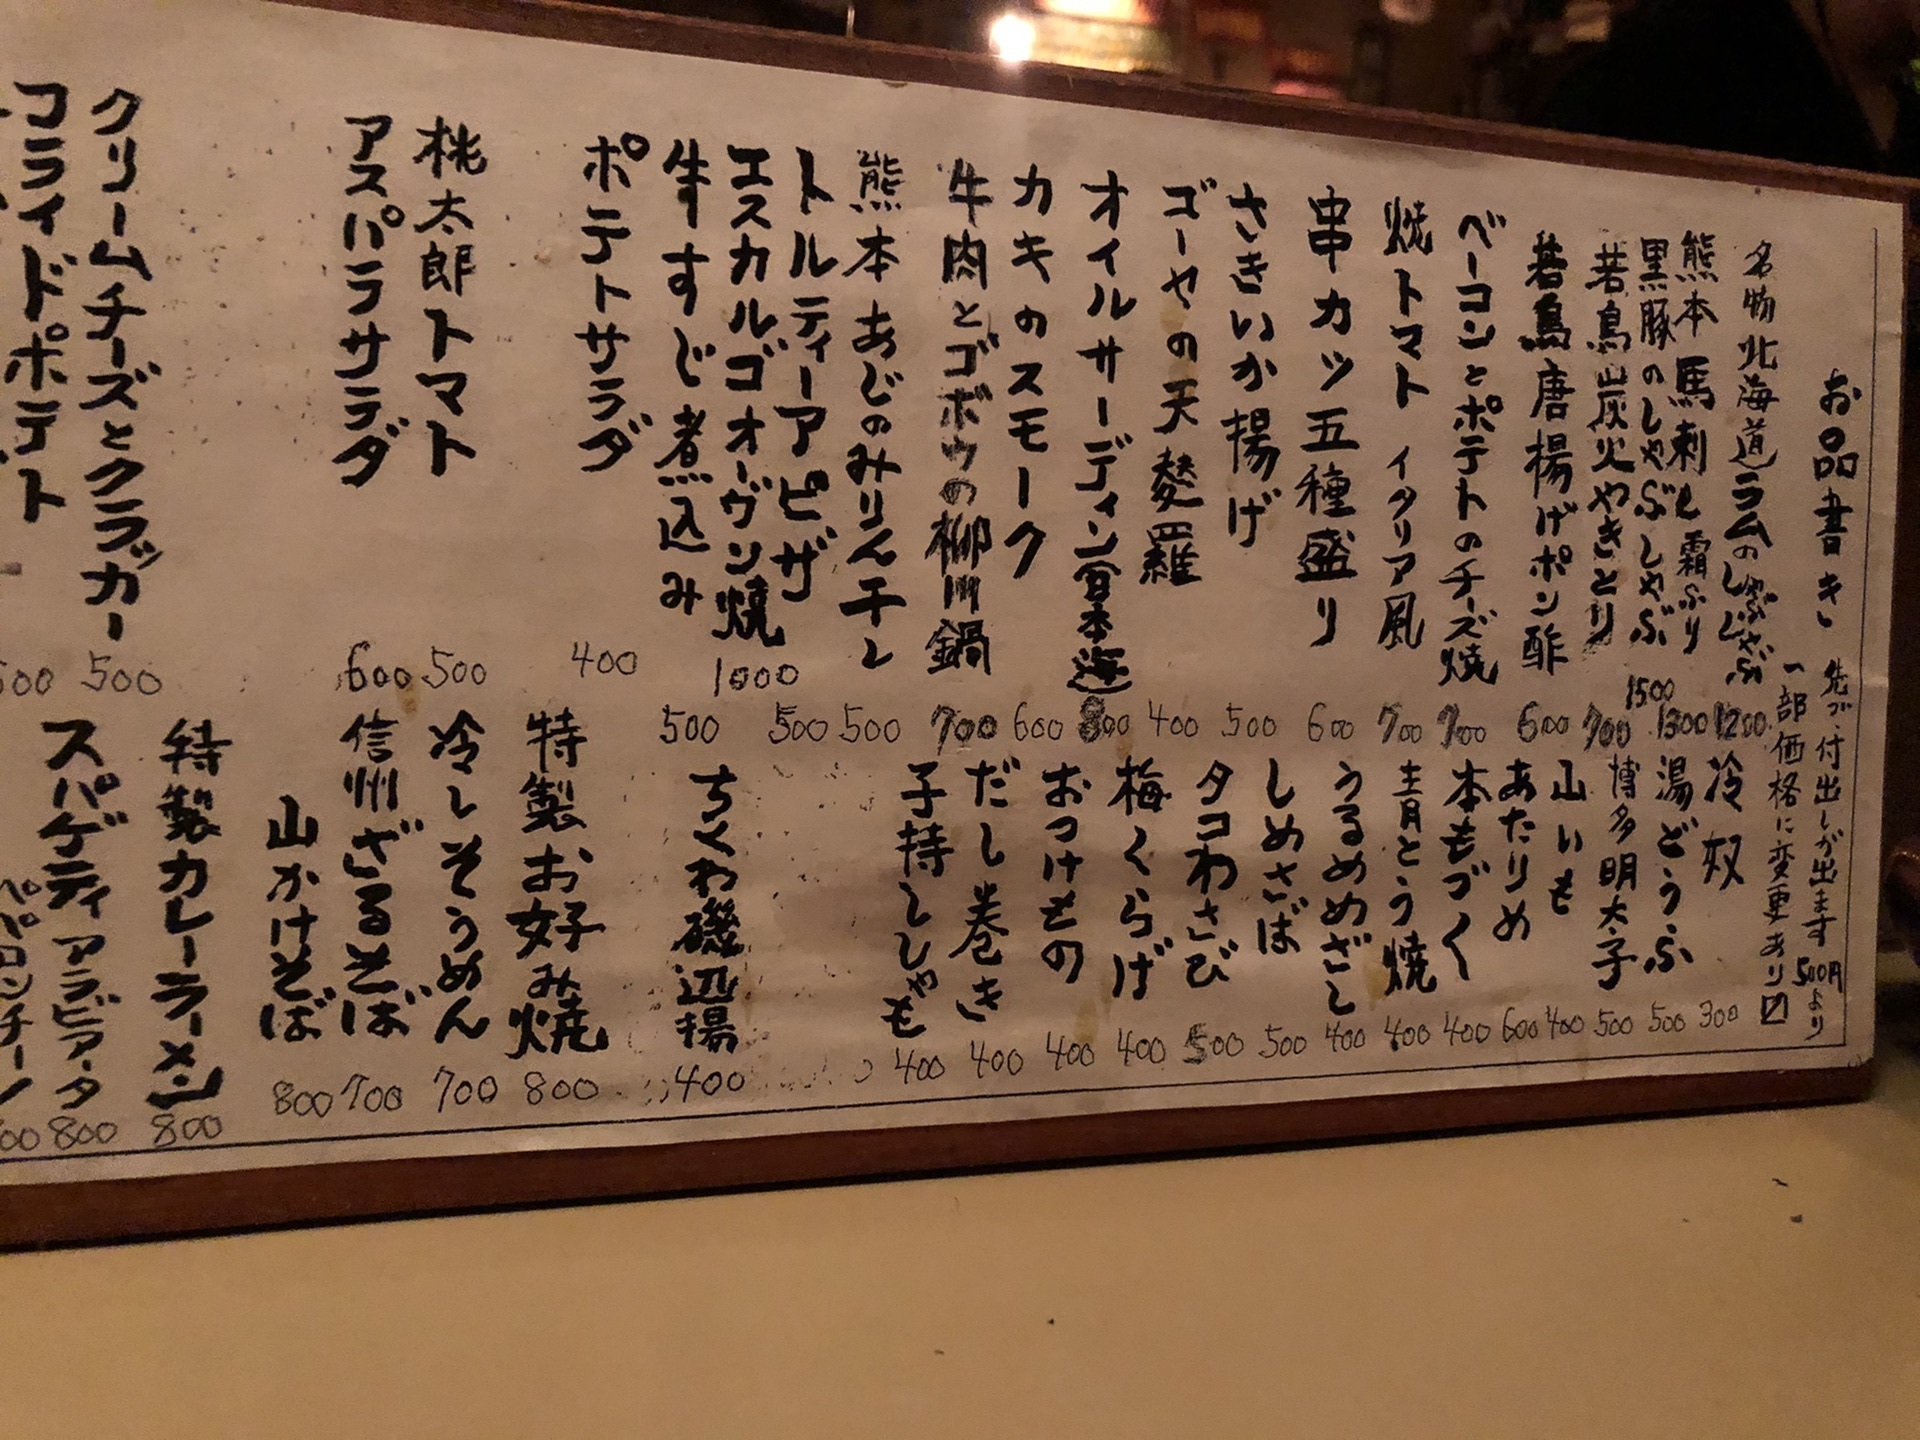 お品書き
先ヅ、付出しが出ます 500円より
一部価格に変更あり〼
名物北海道ラムのしゃぶしゃぶ 1200
熊本馬刺し霜ふり 1300
黒豚のしゃぶしゃぶ 1500
若鳥炭火やきとり 700
若鳥唐揚げポン酢 600
ベーコンとポテトのチーズ焼 700
焼トマト イタリア風 700
串カツ五種盛り 600
さきいか揚げ 500
ゴーヤの天麩羅 400
オイルサーディン日本海 800
カキのスモーク 600
牛肉とゴボウの柳川鍋 700
熊本あじのみりん干し 500
トルティーアピザ 500
エスカルゴオーヴン焼 1000
牛すじ煮込み 500
ポテトサラダ 400
桃太郎トマト 500
アスパラサラダ 600
クリームチーズとクラッカー 500
フライドポテト 500
冷奴 300
湯どうふ 500
博多明太子 500
山いも 400
あたりめ 600
本もづく 400
青とう焼 400
うるめめざし 400
しめさば 500
タコわさび 500
梅くらげ 400
おつけもの 400
だし巻き 400
子持ししゃも 400
ちくわ磯辺揚 400
特製お好み焼 800
冷しそうめん 700
信州ざるそば 700
山かけそば 800
特製カレーラーメン 800
スパゲティ アラビアータ 800
ペペロンチーノ